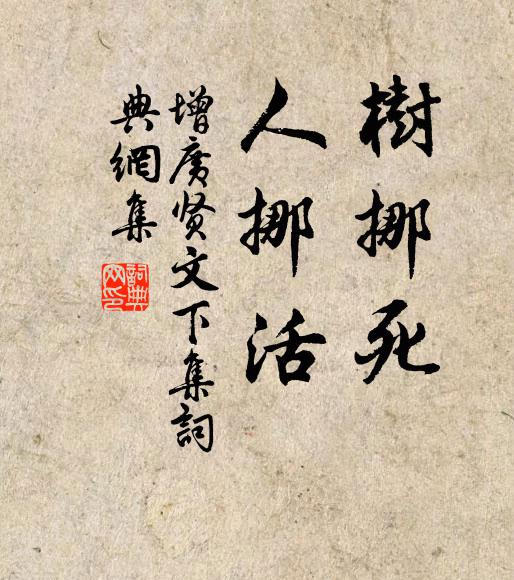 樹挪死
人挪活
增廣贤文下集詞
典網集
詞典
网印